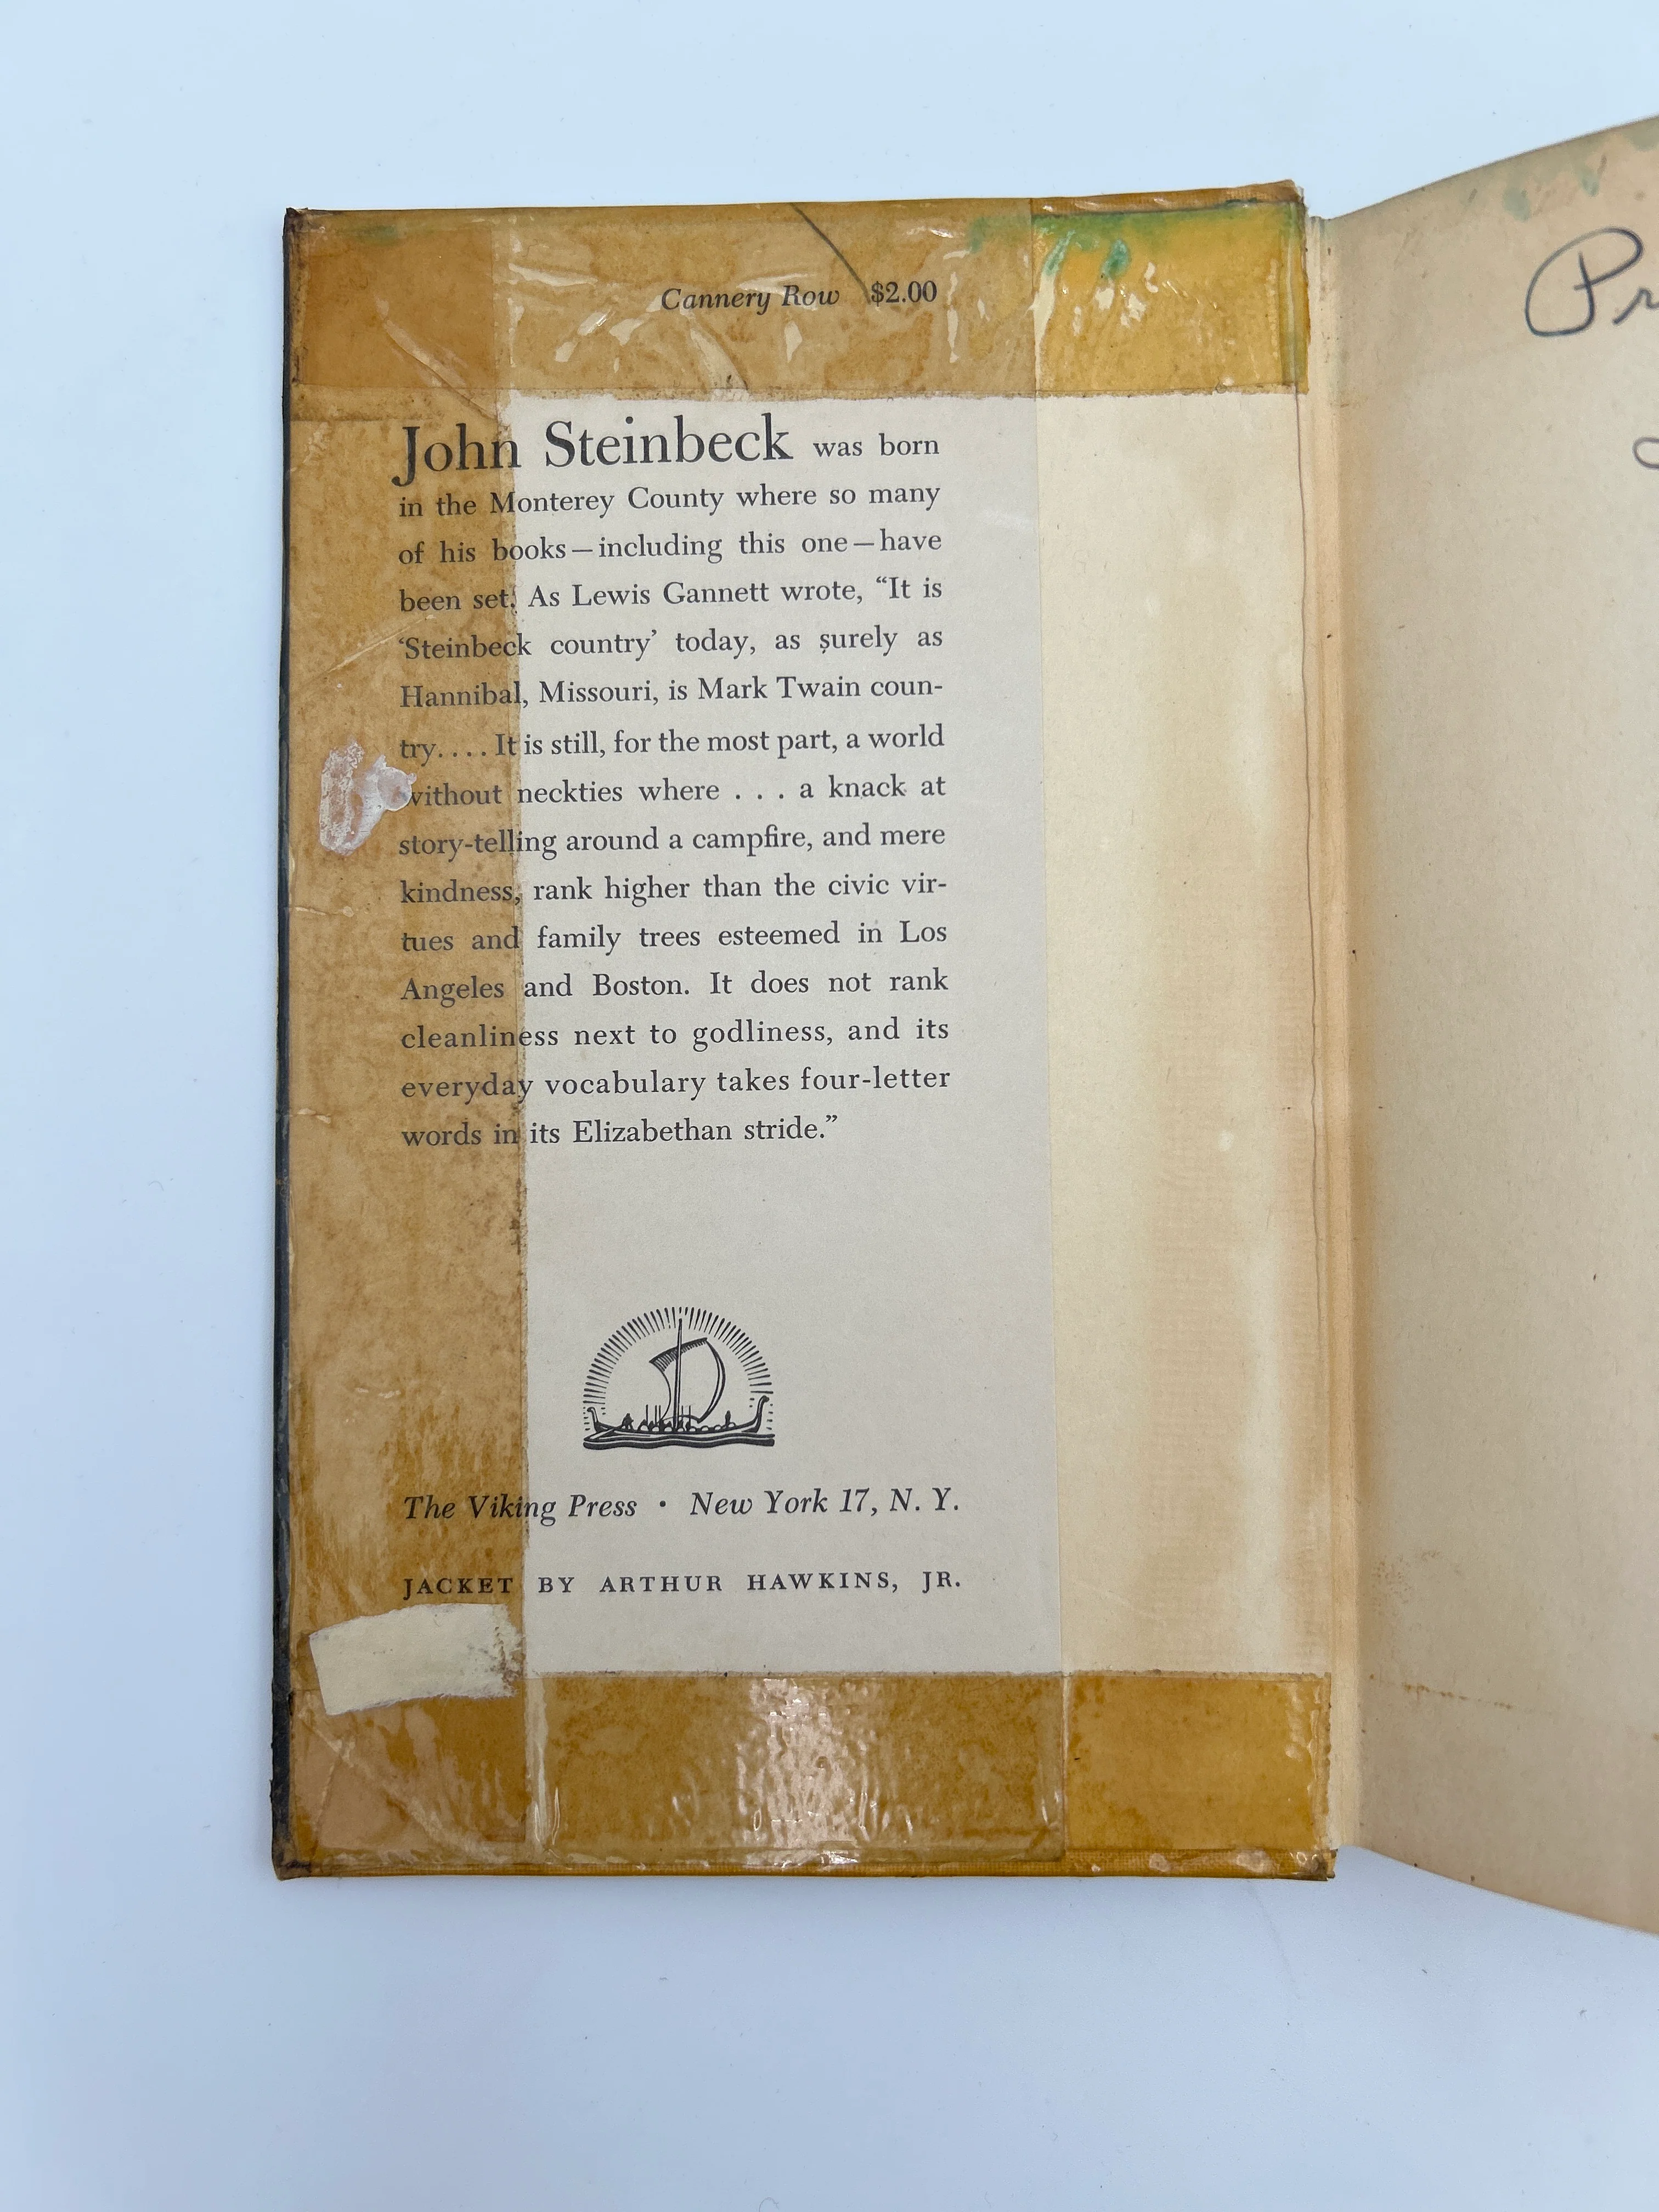 Cannery Row $2.00
John Steinbeck was born
in the Monterey County where so many
of his books—including this one—have
been set. As Lewis Gannett wrote, “It is
‘Steinbeck country’ today, as surely as
Hannibal, Missouri, is Mark Twain coun-
try. . . . It is still, for the most part, a world
without neckties where . . . a knack at
story-telling around a campfire, and mere
kindness, rank higher than the civic vir-
tues and family trees esteemed in Los
Angeles and Boston. It does not rank
cleanliness next to godliness, and its
everyday vocabulary takes four-letter
words in its Elizabethan stride.”
The Viking Press · New York 17, N. Y.
JACKET BY ARTHUR HAWKINS, JR.
Pr